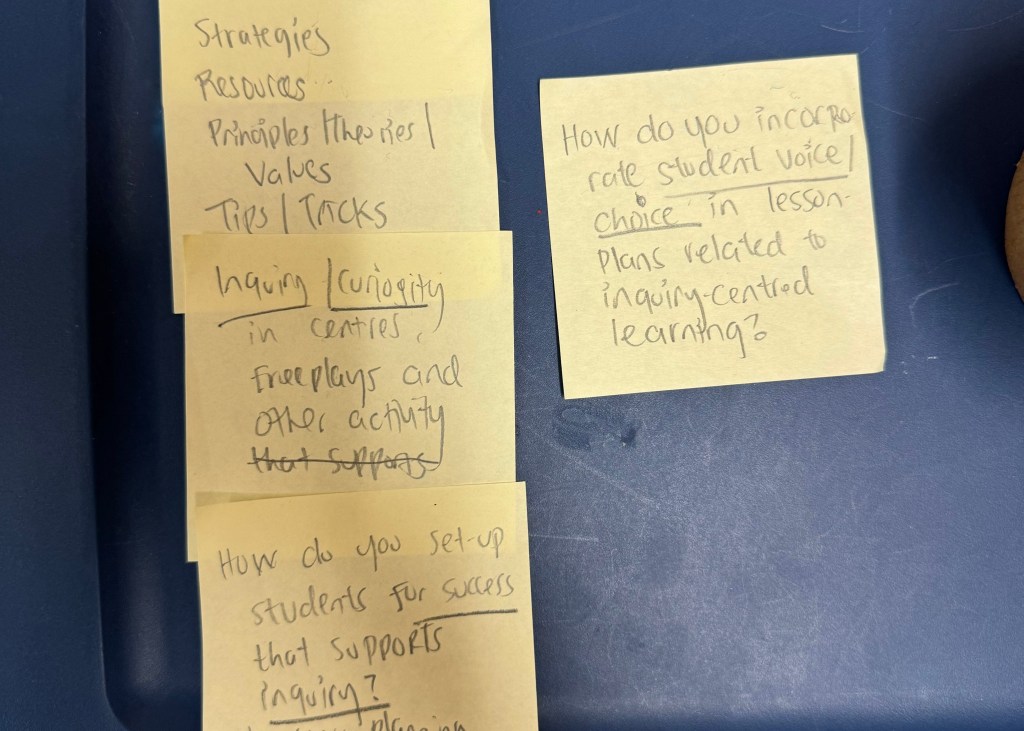 Strategies
Resources
Principles/theories/
Values
Tips/Tricks
Inquiry/curiosity
in centres,
Freeplays and
other activity
that supports
How do you set-up
students for success
that supports
inquiry?
planning
How do you incorpo-
rate student voice/
choice in lesson-
plans related to
inquiry-centred
learning?